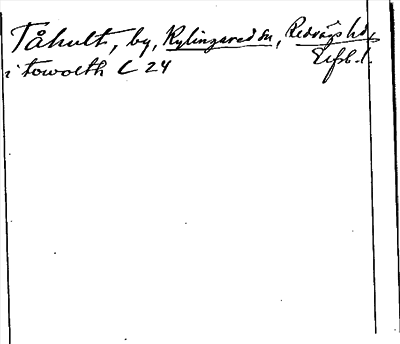 Tåhult, by, Kylingared sn, Redvägs hd,
Elfsb. l.
i towolth C 24